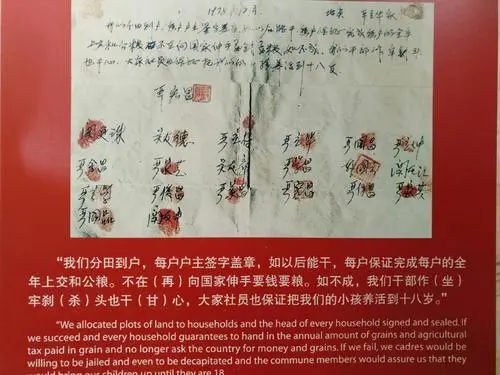 1978.12月 地点 严立华家
我们分田到户,每户户主签字盖章,如以后能干,每户保证完成每户的全年
上交和公粮,不在向国家伸手要钱要粮,如不成,我们干部作牢剎头
也干心,大家社员也保证把我们的小孩养活到十八岁。
严宏昌
关友德 严立华 严国昌 严立坤
严金昌 严家芝 关友章 严学昌 韩国云 关友江
严立符 严俊昌 严美昌 严宏昌 严付昌 严家其
严国品 关友申
“我们分田到户,每户户主签字盖章,如以后能干,每户保证完成每户的全
年上交和公粮。不在(再)向国家伸手要钱要粮。如不成,我们干部作(坐)
牢刹(杀)头也干(甘)心,大家社员也保证把我们的小孩养活到十八岁。”
"We allocated plots of land to households and the head of every household signed and sealed. If
we succeed and every household guarantees to hand in the annual amount of grains and agricultural
tax paid in grain and no longer ask the country for money and grains. If we fail, we cadres would be
willing to be jailed and even to be decapitated and the commune members would assure us that they
would bring our children up until they are 18.